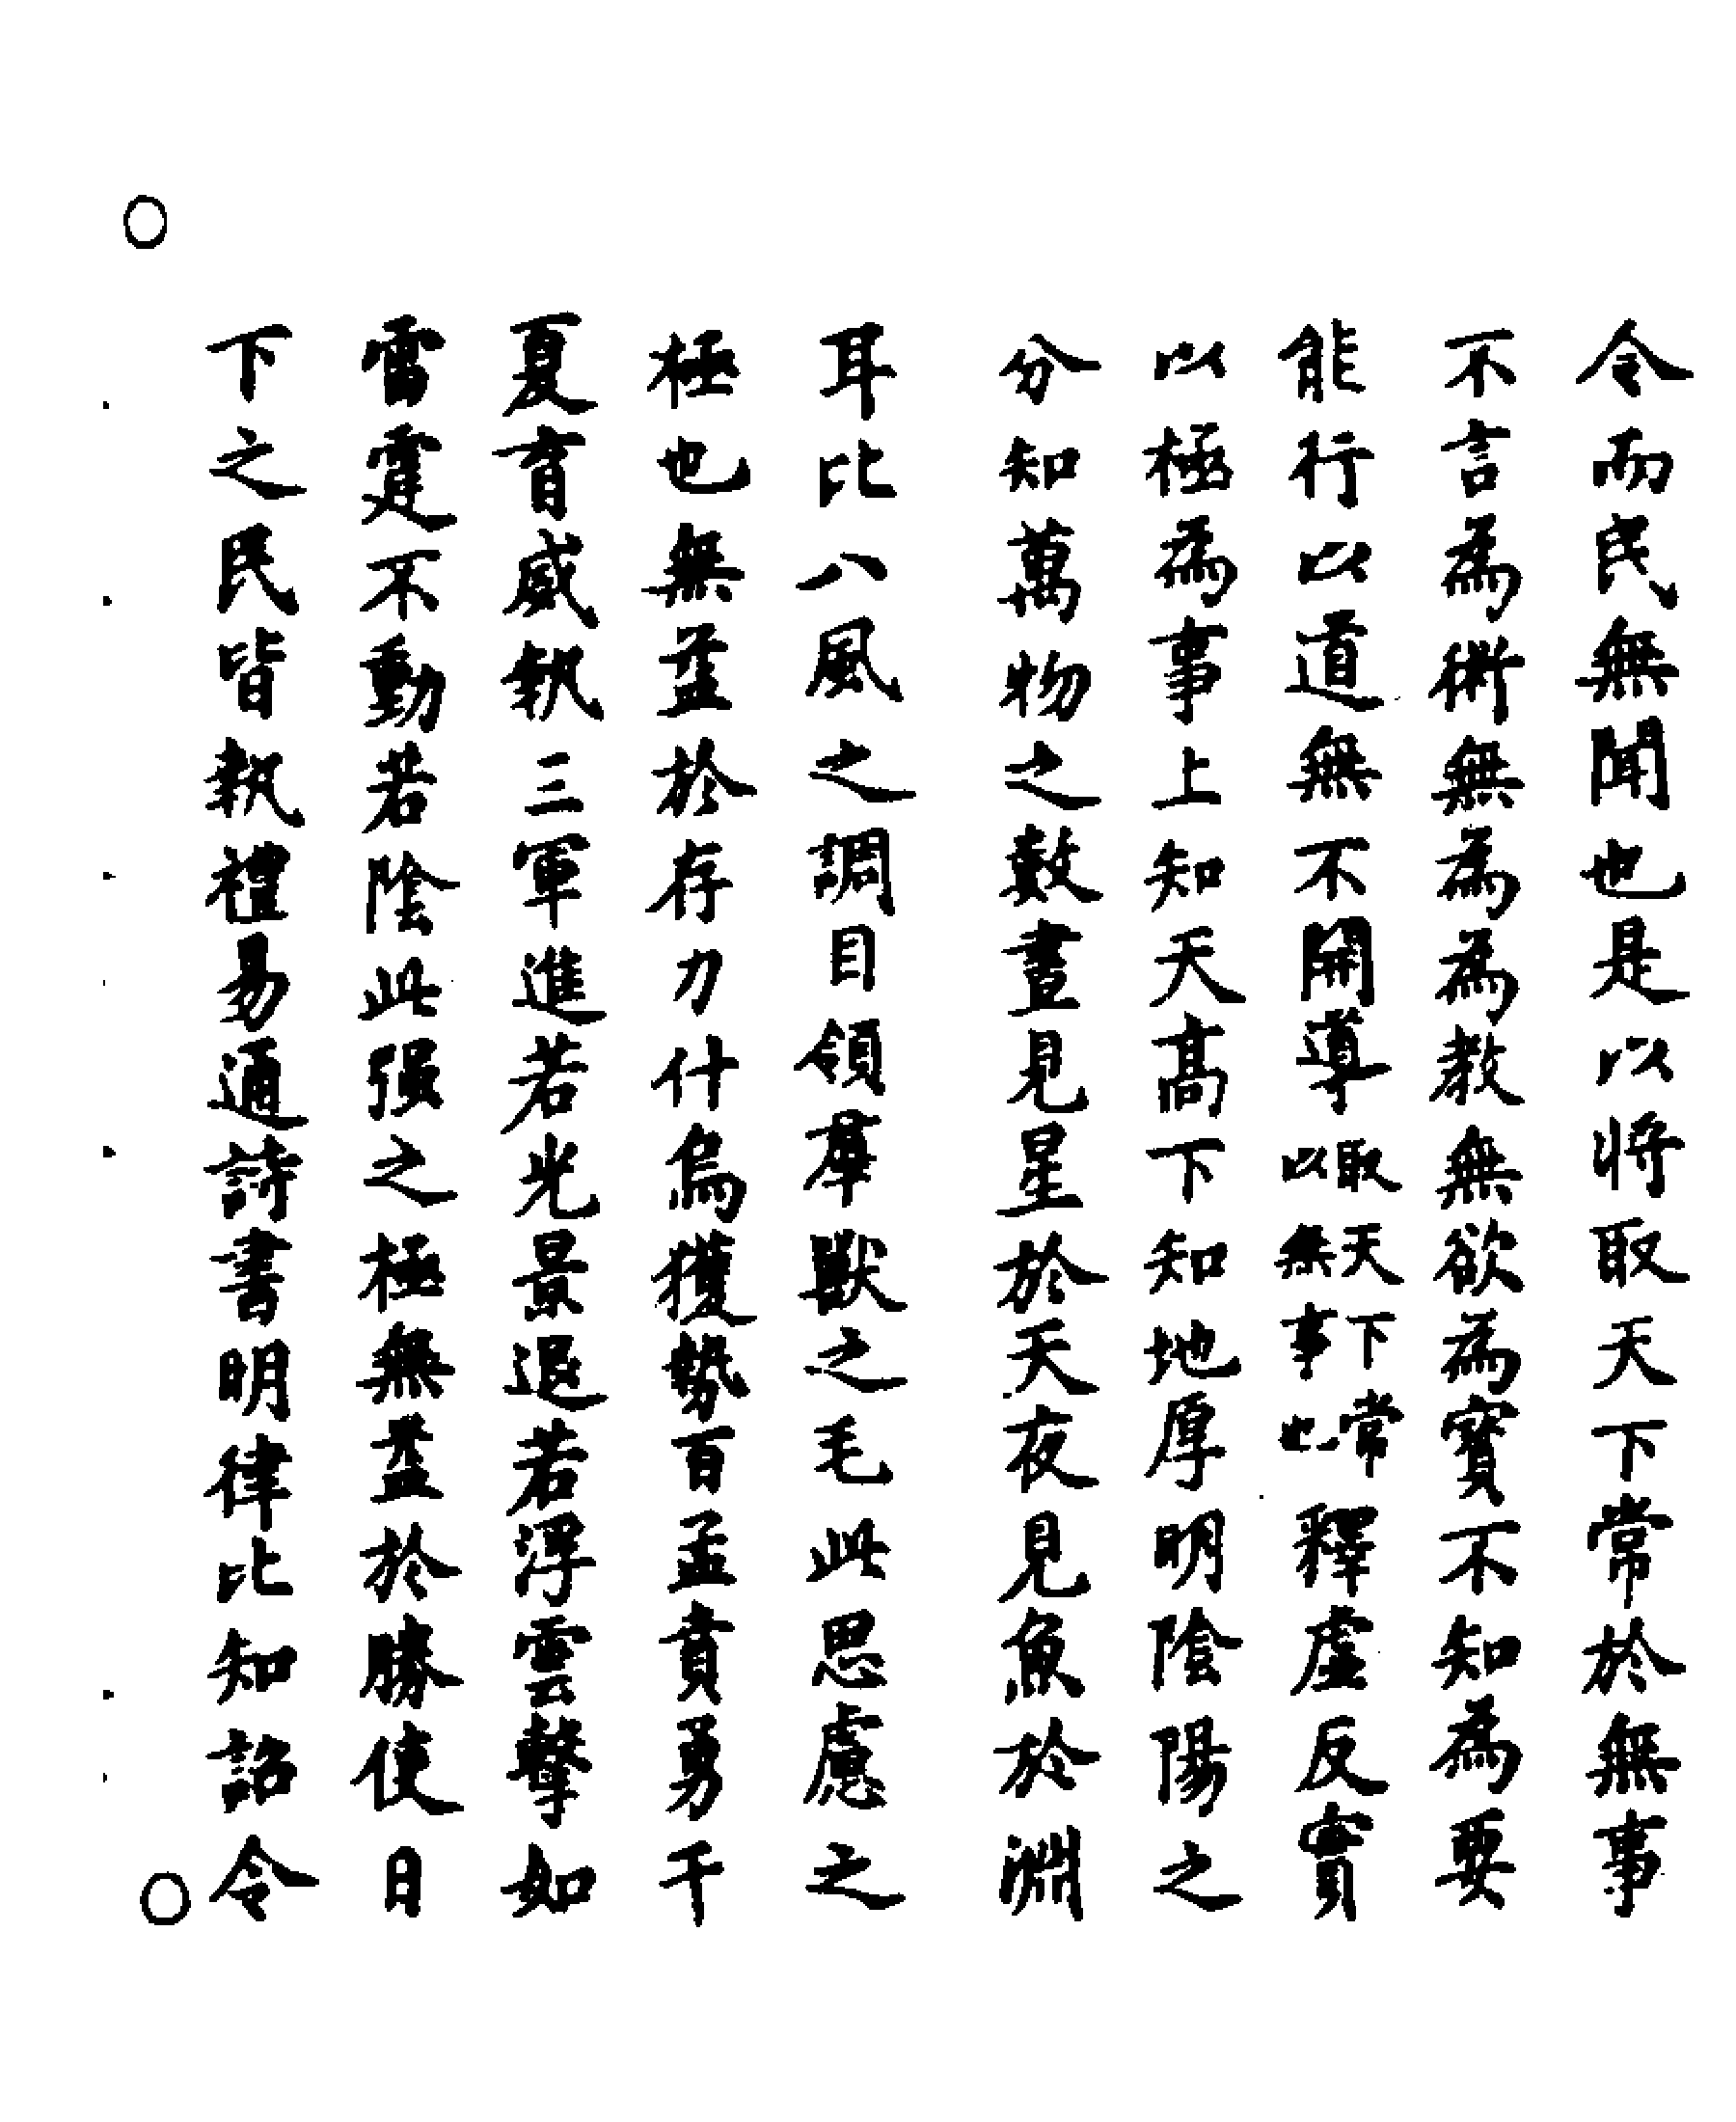 令而民無聞也是以将取天下常於無事
不言為術無為為教無欲為寳不知為要
能行以道無不開導取天下常以無事也釋虚反實
以極為事上知天髙下知地厚明隂陽之
分知萬物之數晝見星於天夜見魚於淵
耳比八風之調目領羣獸之毛此思慮之
極也無益於存力什烏獲勢百孟賁勇千
夏育威執三軍進若光景退若浮雲擊如
雷霆不動若隂此强之極無益於勝使日
下之民皆執禮易通詩書明律比知詔令